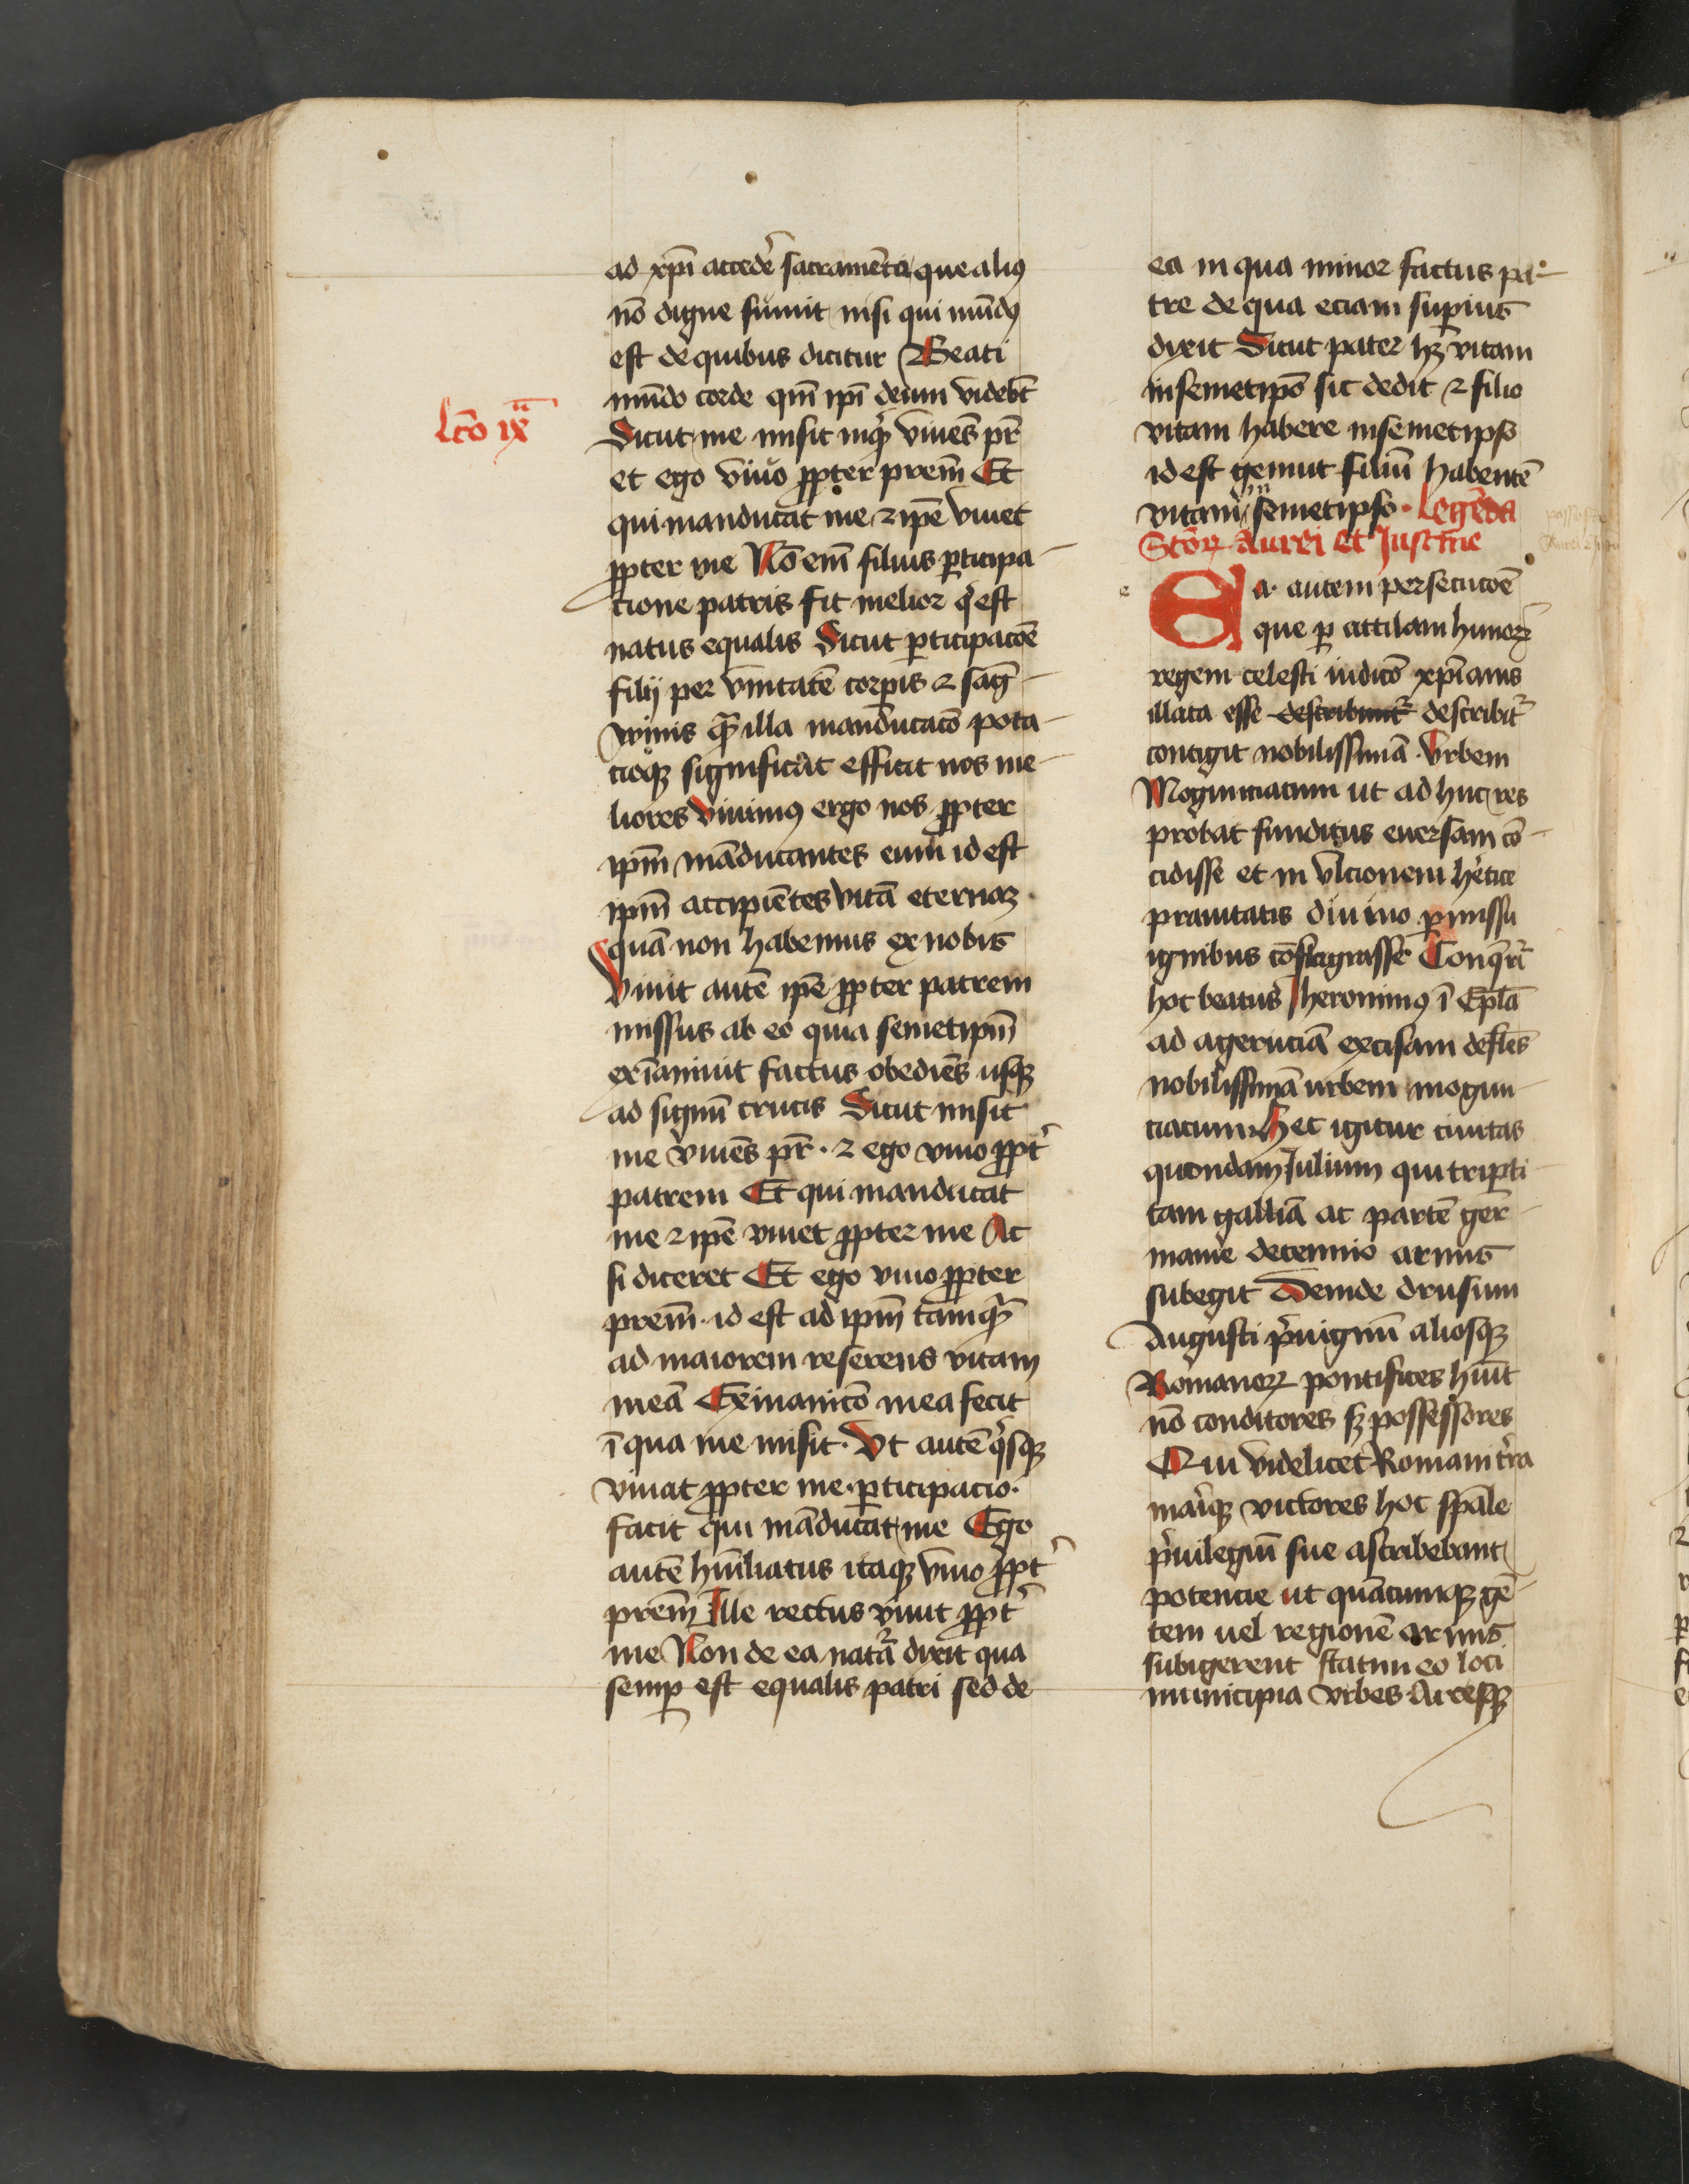 ad xp̄i accedē sacramēta que aliꝰ
nō digne sumit nisi qui mūdꝰ
est de quibus dicitur Beati
mūdo corde qm̄ ip̄i deum videbt̄
Lc̄o ixᵃ
Sicut me misit inqͥt viuēs pr̄
et ego viuo ꝓpter prem̄ Et
qui manducat me ⁊ ip̄e viuet
ꝓpter me Nō em̄ filius ꝑticipa
cione patris fit melior qͥ est
natus equalis Sicut ꝑticipacōe
filij per vnitatē corpīs ⁊ sāg
winis qᷓ illa manducacō pota
cioqꝫ significāt efficit nos me
liores Viuimꝰ ergo nos ꝓpter
ip̄m māducantes eum id est
ip̄m accipiētes vitā eternaꝫ
quā non habemus ex nobis
Viuit autē ip̄e ꝓpter patrem
missus ab eo quia semetip̄m
exīaniuit factus obediēs usqꝫ
ad signū crucis Sicut misit
me viuēs pr̄ · ⁊ ego viuo ꝓpt̄
patrem Et qui manducat
me ⁊ ip̄e viuet ꝓpter me Ac
si diceret Et ego viuo ꝓpter
prem̄ · id est ad ip̄m tamqᷓ
ad maiorem referens vitam
meā Exinanicō mea fecit
ī qua me misit · Vt autē qͥsqꝫ
viuat ꝓpter me · ꝑticipacio ·
facit qui māducat me Ego
autē hūiliatus itaqꝫ viuo ꝓpt̄
prem̄ Ille rectus viuit ꝓpt̄
me Non de ea nat̄a dixit qua
semꝑ est equalis patri sed de
ea in qua minor factus pa
tre de qua eciam suꝑius
dixit Sicut pater hꝫ vitam
in semetip̄o sic dedit ⁊ filio
vitam habere in semetipso
id est genuit filiū habentē
vitam in semetipso · Legēda
Sc̄oꝝ Aurei et Justīe
e
Ea autem persecucōe
que ꝑ attilam hunoꝝ
regem celesti iudicō xp̄ianis
illata esse describunt̄ describit̄
contigit nobilissimā Vrbem
Mogunciacum ut ad huc res
probat funditus euersam cō
cidisse et in vlcionem hētice
prauitatis diuino ꝑmissu
ignibus cōflagrasse Conqͥrit̄
hoc beatus Jheronimꝰ ī Epl̄a
ad ageruciā excisam deflēs
nobilissimā urbem mogun
ciacum Hec igitur ciuitas
quondam Julium qui triꝑti
tam galliā ac partē ger
manie decennio armis
subegit Deinde drusum
Augusti pͥuignū aliosqꝫ
Romanoꝝ pontifices hūit
nō conditores sꝫ possessores
Qui videlicet Romani tr̄a
mariqꝫ victores hoc sp̄ale
pͥuilegiū sue ascribebant
potencie ut quācumqꝫ gē
tem uel regionē armis
subigerent statim eo loci
municipia vrbes Arcesqꝫ